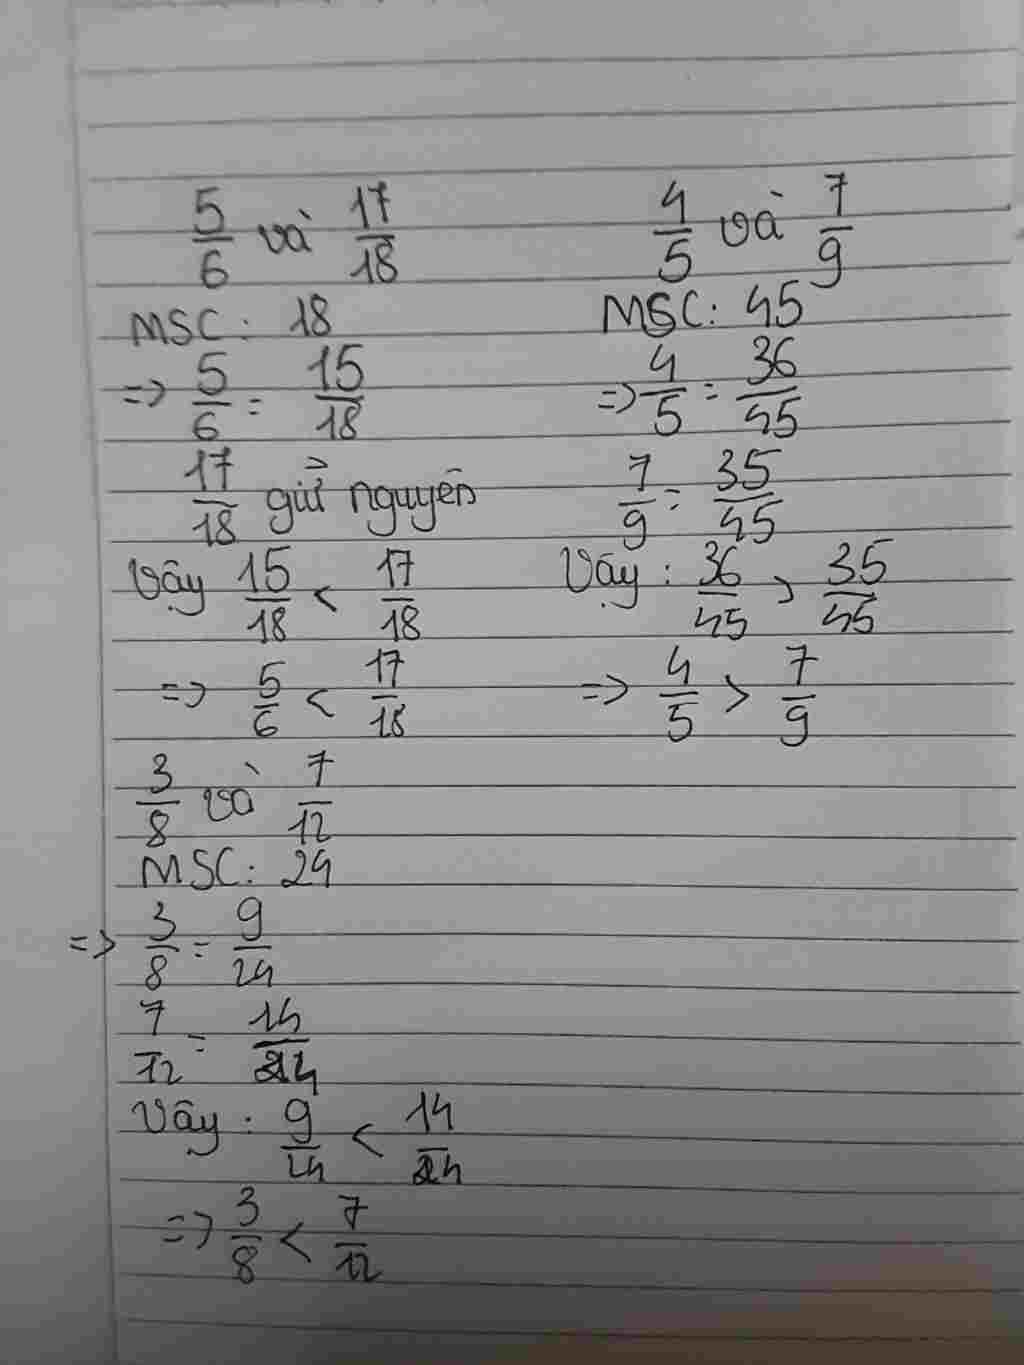 5/6 và 17/18
MSC: 18
=> 5/6 = 15/18
17/18 giữ nguyên
Vậy 15/18 < 17/18
=> 5/6 < 17/18
4/5 và 7/9
MSC: 45
=> 4/5 = 36/45
7/9 = 35/45
Vậy: 36/45 > 35/45
=> 4/5 > 7/9
3/8 và 7/12
MSC: 24
=> 3/8 = 9/24
7/12 = 14/24
Vậy: 9/24 < 14/24
=> 3/8 < 7/12